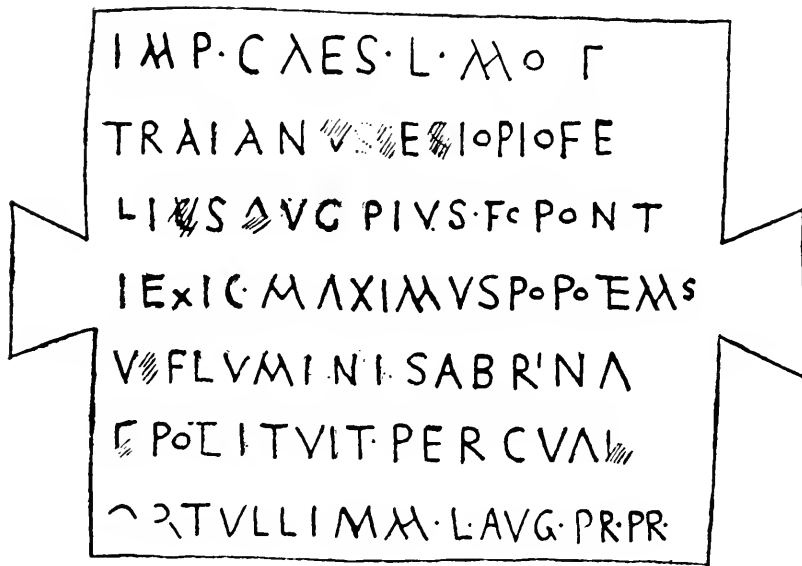 IMP·CAES·L·MO Γ
TRAIANV E IOPIOFE
LIVS AVG PIVS·FC PONT
IEXIC·MAXIMVSPOPOTEMS
V FLVMINI SABRINA
POTITVIT·PERCVA
RTVLLIMM·L·AVG·PR·PR·